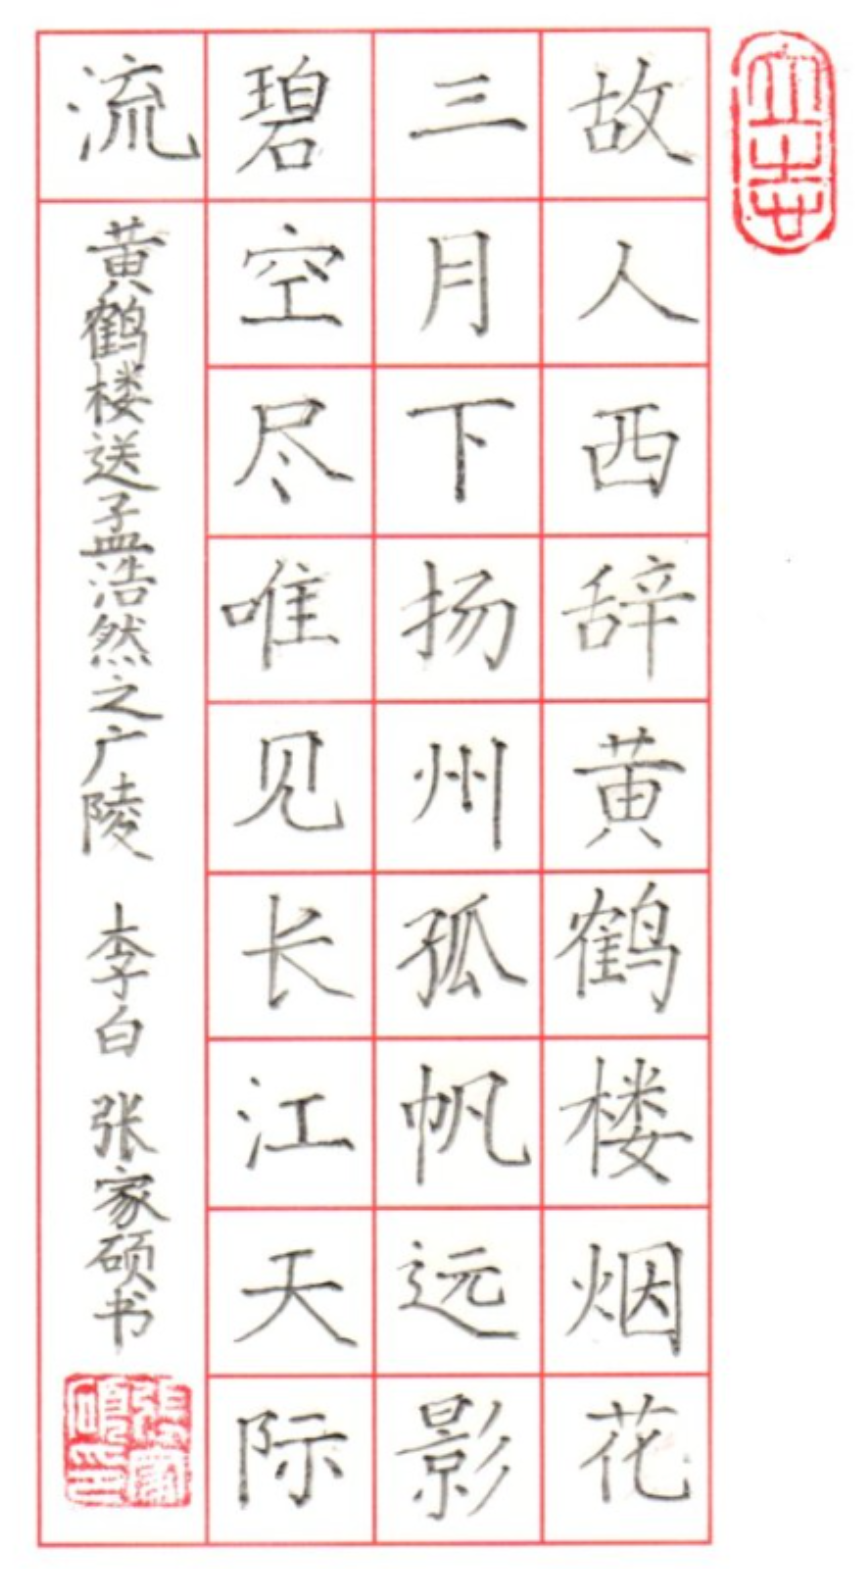 立志
故人西辞黄鹤楼烟花
三月下扬州孤帆远影
碧空尽唯见长江天际
流
黄鹤楼送孟浩然之广陵 李白 张家硕书
張家
碩印